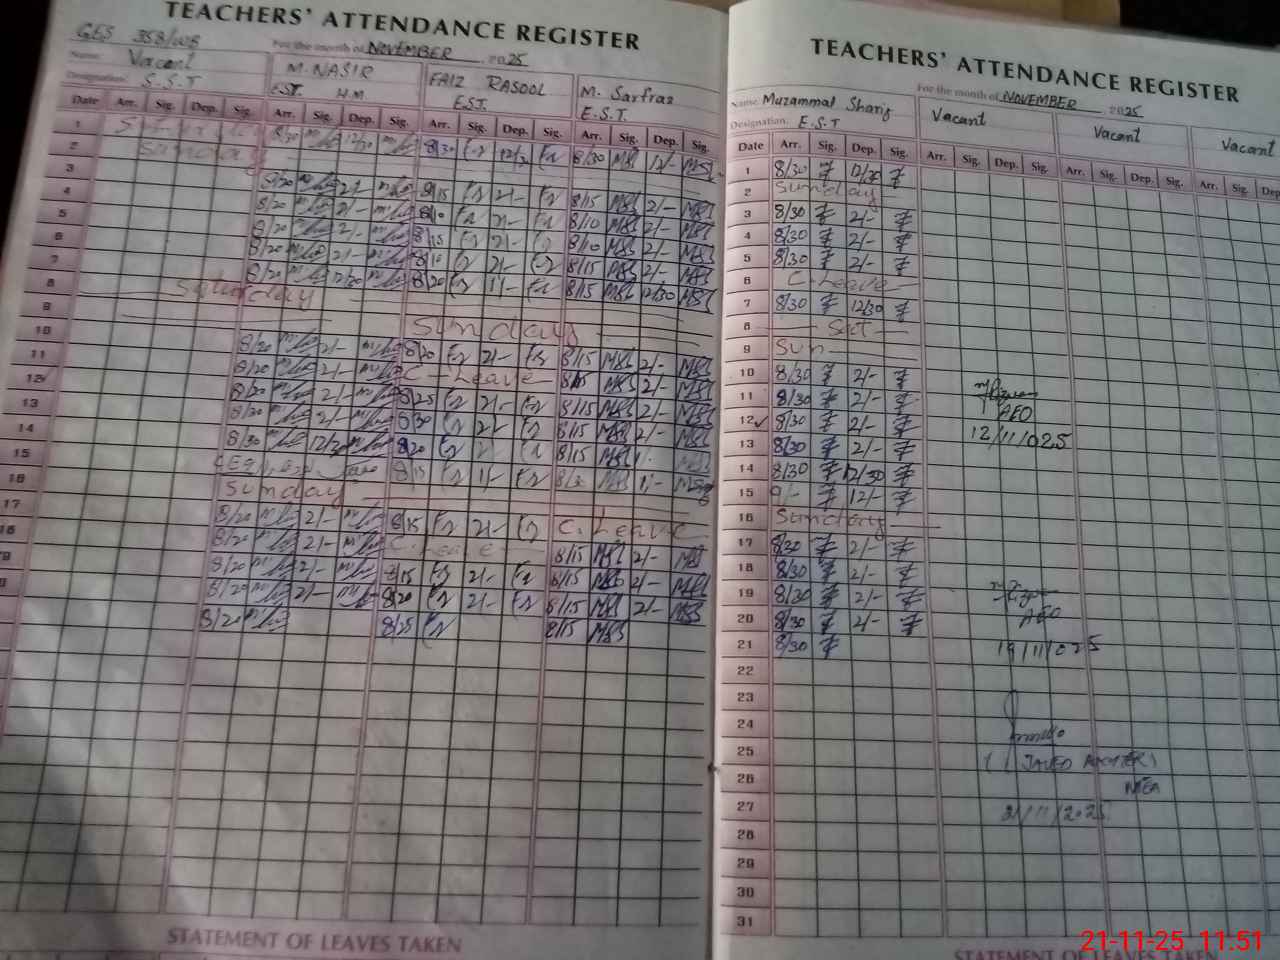 TEACHERS' ATTENDANCE REGISTER
GES 358/WB
For the month of NOVEMBER 2025
Name: Vacant
Designation: S.S.T
M. NASIR
EST. H.M.
FAIZ RASOOL
EST.
M. Sarfraz
E.S.T.
Date Arr. Sig. Dep. Sig. Arr. Sig. Dep. Sig. Arr. Sig. Dep. Sig. Arr. Sig. Dep. Sig.
1 8/30 12/30 8/30 12/30 8/30 12/-
2 Sunday
3 8/20 2/- 8/15 2/- 8/15 2/-
4 8/20 2/- 8/10 2/- 8/10 2/-
5 8/20 2/- 8/15 2/- 8/10 2/-
6 8/20 2/- 8/10 2/- 8/15 2/-
7 8/20 12/30 8/20 1/- 8/15 12/30
8 Saturday
9 Sunday
10 8/20 2/- 8/20 2/- 8/15 2/-
11 8/20 2/- C-Leave 8/15 2/-
12 8/20 2/- 8/25 2/- 8/15 2/-
13 8/20 2/- 8/30 2/- 8/15 2/-
14 8/30 12/30 8/20 8/15
15 8/15 1/- 8/30 1/-
16 Sunday
17 8/20 2/- 8/15 2/- C. Leave
18 8/20 2/- C. Leave 8/15 2/-
8/20 2/- 8/15 2/- 8/15 2/-
8/20 2/- 8/20 2/- 8/15 2/-
8/20 8/25 8/15
STATEMENT OF LEAVES TAKEN
TEACHERS' ATTENDANCE REGISTER
For the month of NOVEMBER 2025
Name: Muzammal Sharif
Designation: E.S.T
Vacant
Vacant
Vacant
Date Arr. Sig. Dep. Sig. Arr. Sig. Dep. Sig. Arr. Sig. Dep. Sig. Arr. Sig.
1 8/30 12/30
2 Sunday
3 8/30 2/-
4 8/30 2/-
5 8/30 2/-
6 C. Leave
7 8/30 12/30
8 Sat
9 Sun
10 8/30 2/-
11 8/30 2/-
AEO
12 8/30 2/-
12/11/025
13 8/30 2/-
14 8/30 12/30
15 9/- 12/-
16 Sunday
17 8/30 2/-
18 8/30 2/-
19 8/30 2/-
AEO
20 8/30 2/-
21 8/30
19/11/025
22
23
24
25
(JAVED AKHTER)
26
MEA
27
21/11/2025
28
29
30
31
STATEMENT OF LEAVES TAKEN
21-11-25 11:51